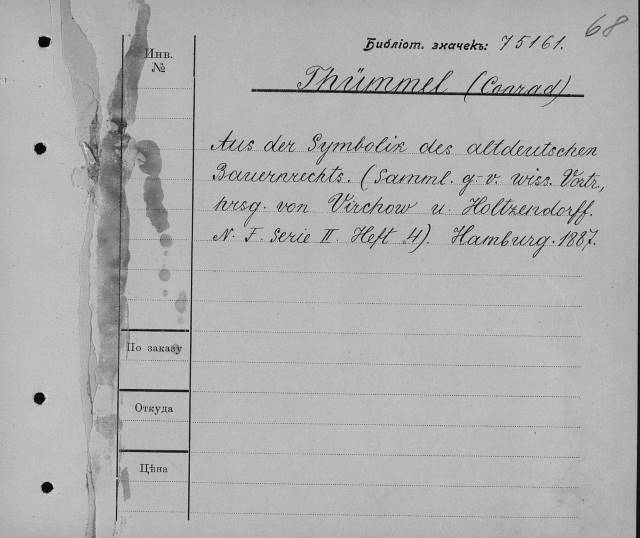 68
Инв.
№
Библіот. значекъ: 75161.
Thümmel (Conrad)
Aus der Symbolik des altdeutschen
Bauernrechts. (Samml. g-v. wiss. Vortr.,
hrsg. von Virchow u. Holtzendorff.
N. F. Serie II. Heft 4). Hamburg. 1887.
По заказу
Откуда
Цѣна